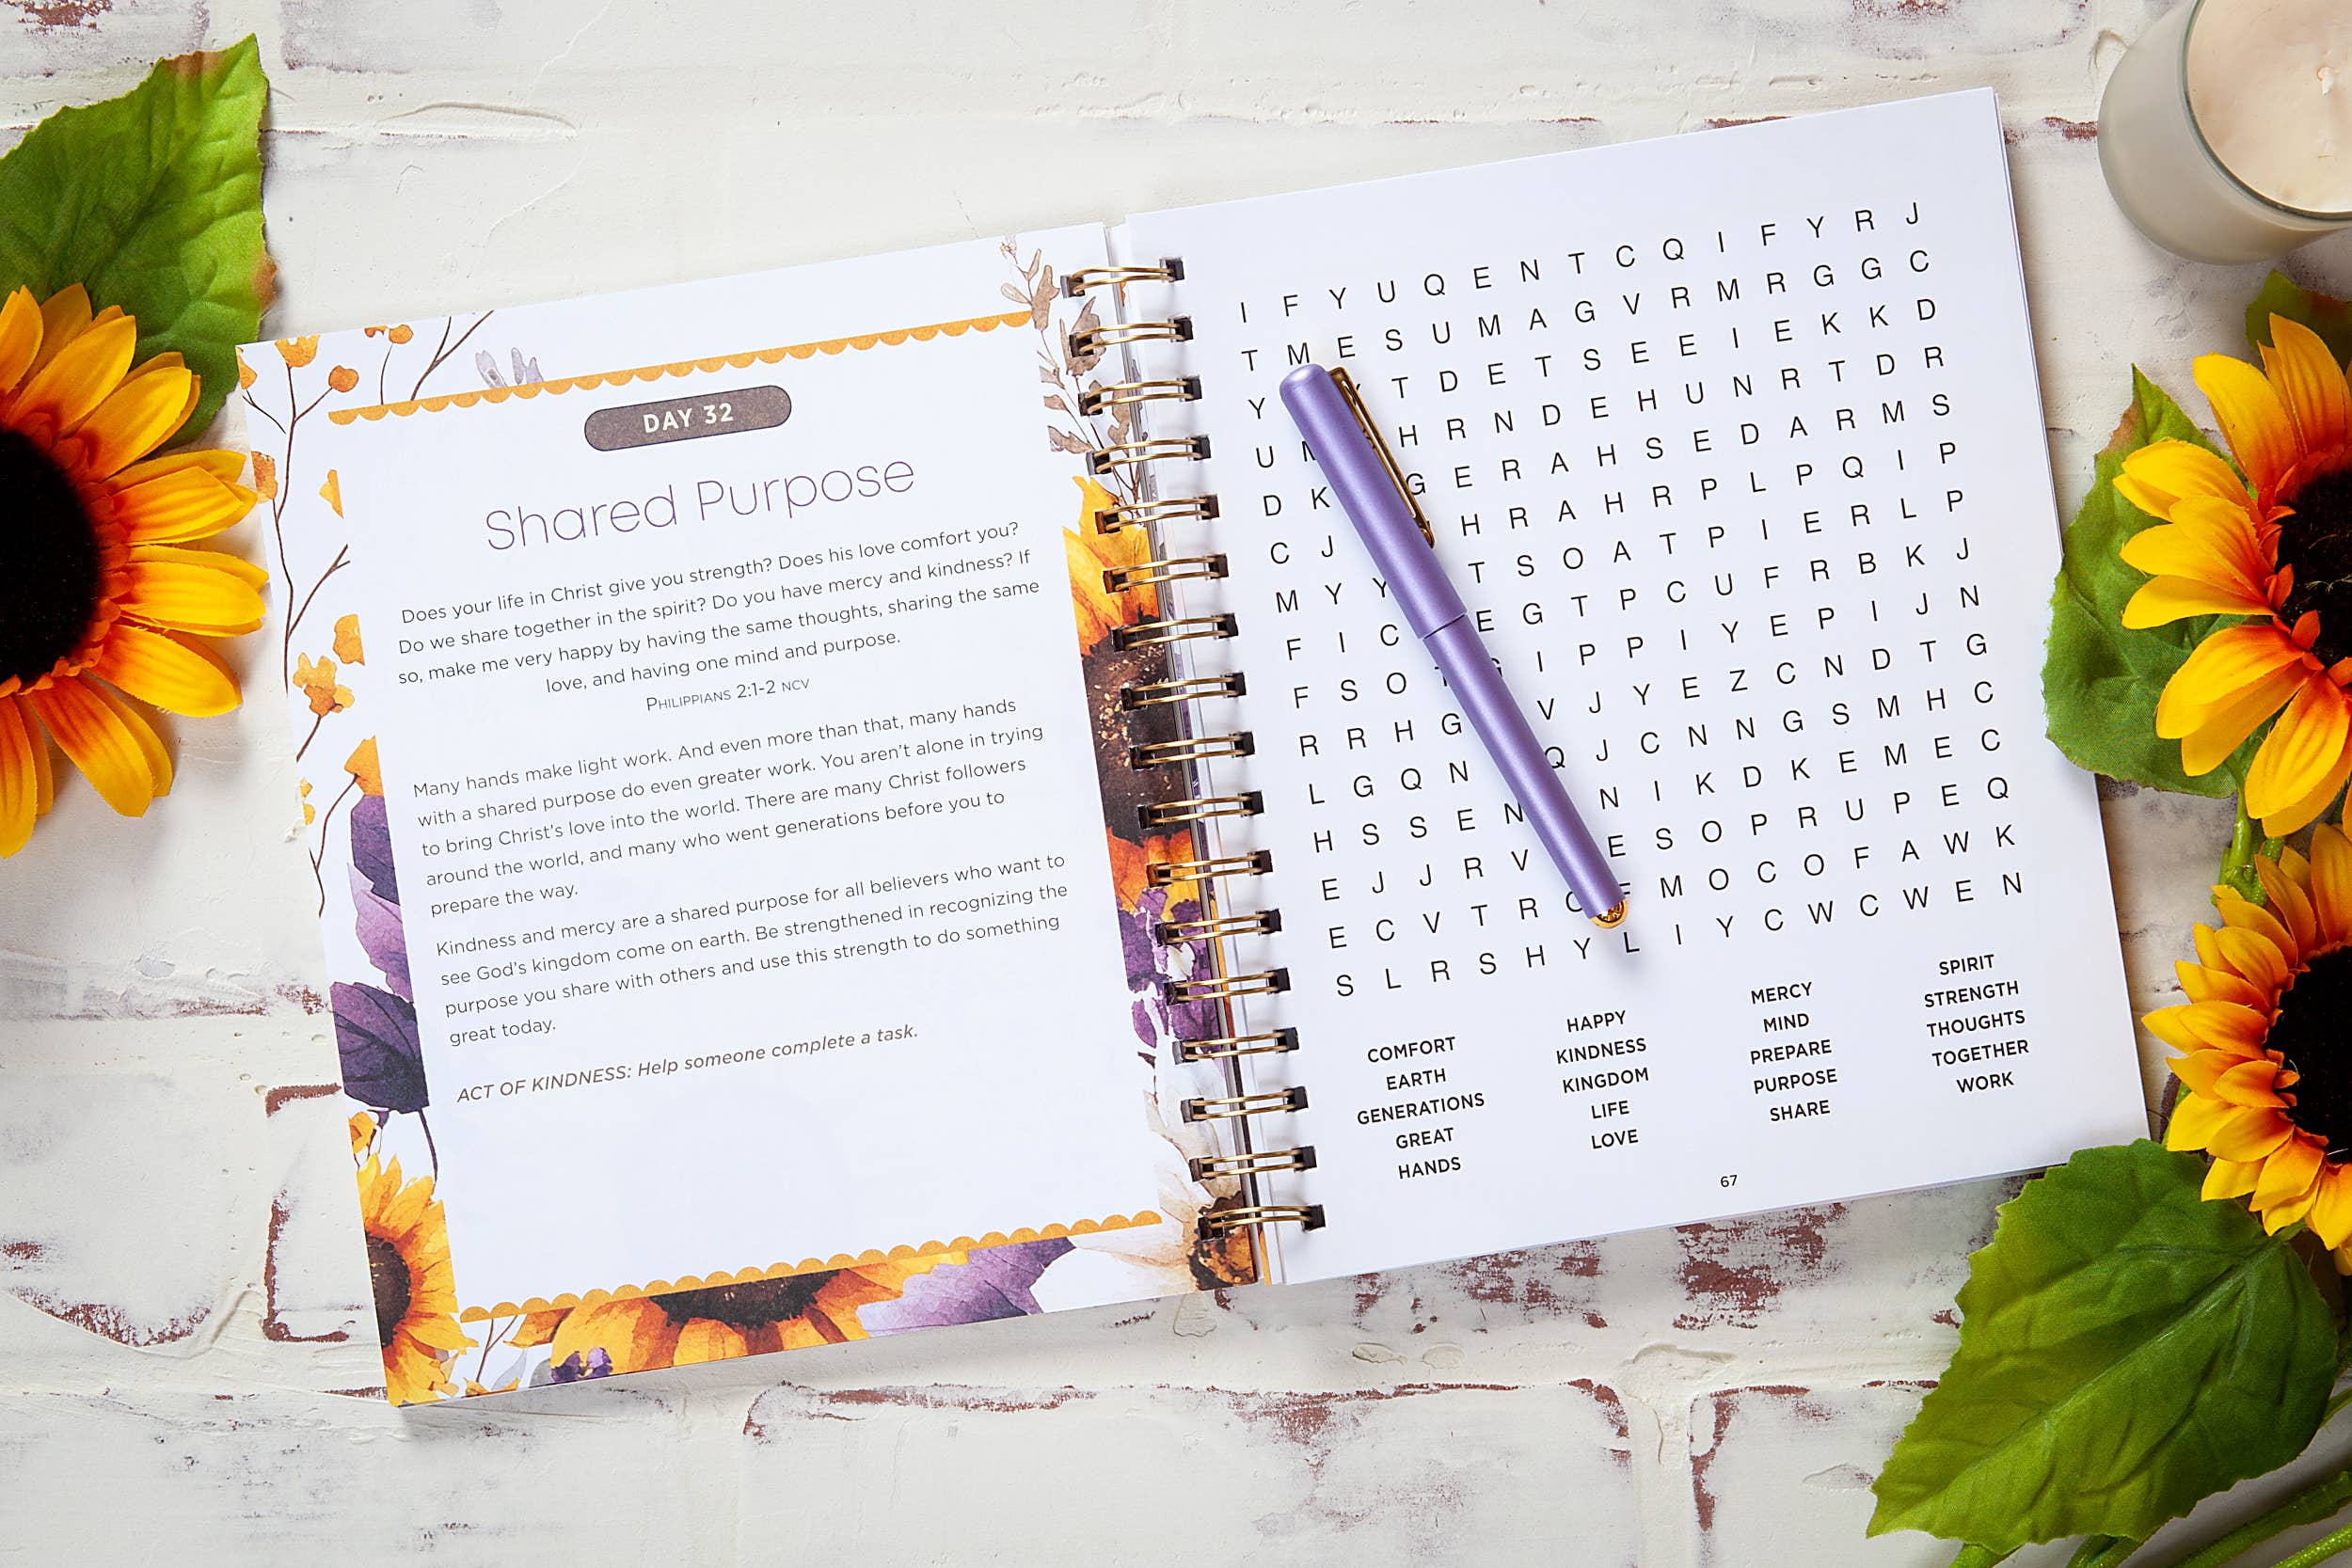 DAY 32
Shared Purpose
Does your life in Christ give you strength? Does his love comfort you?
Do we share together in the spirit? Do you have mercy and kindness? If
so, make me very happy by having the same thoughts, sharing the same
love, and having one mind and purpose.
Philippians 2:1-2 NCV
Many hands make light work. And even more than that, many hands
with a shared purpose do even greater work. You aren't alone in trying
to bring Christ's love into the world. There are many Christ followers
around the world, and many who went generations before you to
prepare the way.
Kindness and mercy are a shared purpose for all believers who want to
see God's kingdom come on earth. Be strengthened in recognizing the
purpose you share with others and use this strength to do something
great today.
ACT OF KINDNESS: Help someone complete a task.
I F Y U Q E N T C Q I F Y R J
T M E S U M A G V R M R G G C
Y T D E T S E E I E K K D
U H R N D E H U N R T D R
D K G E R A H S E D A R M S
C J H R A H R P L P Q I P
M Y Y T S O A T P I E R L P
F I C E G T P C U F R B K J
F S O I P P I Y E P I J N
R R H G V J Y E Z C N D T G
L G Q N Q J C N N G S M H C
H S S E N N I K D K E M E C
E J J R V E S O P R U P E Q
E C V T R M O C O F A W K
S L R S H Y L I Y C W C W E N
COMFORT
EARTH
GENERATIONS
GREAT
HANDS
HAPPY
KINDNESS
KINGDOM
LIFE
LOVE
MERCY
MIND
PREPARE
PURPOSE
SHARE
SPIRIT
STRENGTH
THOUGHTS
TOGETHER
WORK
67